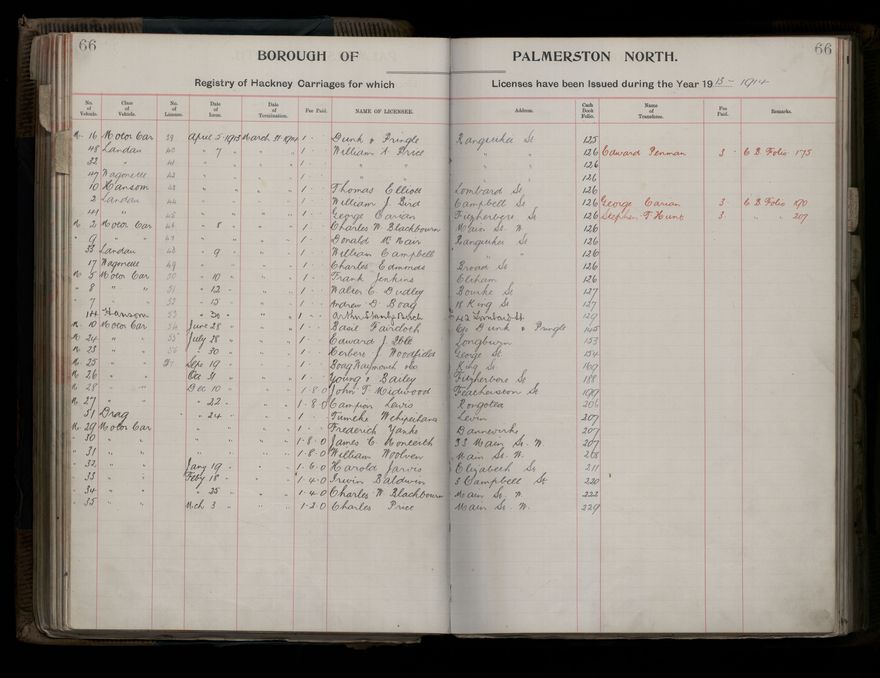 66
66
BOROUGH OF PALMERSTON NORTH.
Registry of Hackney Carriages for which Licenses have been Issued during the Year 1913 - 1914
No. of Vehicle. Class of Vehicle. No. of License. Date of Issue. Date of Termination. Fee Paid. NAME OF LICENSEE. Address. Cash Book Folio. Name of Transferee. Fee Paid. Remarks.
M 16 Motor Car 39 April 5 1913 March 31 1914 1 - - Dunk & Pringle Rangitikei St 125
48 Landau 40 " 7 " " " 1 - - William A Price " " 126 Edward Penman 3 - C B Folio 175
32 " 41 " " " " 1 - - " " " " 126
47 Wagonette 42 " " " " 1 - - " " " " 126
10 Hansom 43 " " " " 1 - - Thomas Elliott Lombard St 126
2 Landau 44 " " " " 1 - - William J Bird Campbell St 126 George Carian 3 - C B Folio 190
41 " 45 " " " " 1 - - George Carian Fitzherbert St 126 Stephen T Hunt 3 " " 207
M 2 Motor Car 46 " 8 " " " 1 - - Charles W Blackbourn Main St W 126
" 9 " " 47 " " " " 1 - - Donald McNair Rangitikei St 126
33 Landau 48 " 9 " " " 1 - - William Campbell " " 126
17 Wagonette 49 " " " " 1 - - Charles Edmonds Broad St 126
M 5 Motor Car 50 " 10 " " " 1 - - Frank Jenkins Eltham 126
" 8 " " 51 " 12 " " " 1 - - Walter C Dudley Bourke St 127
" 7 " " 52 " 15 " " " 1 - - Andrew D Boag 18 King St 127
44 Hansom 53 " 30 " " " 1 - - Arthur 42 Lombard St 129
M 10 Motor Car 54 June 28 " " " 1 - - Basil Fairdoth C/o Dunk & Pringle 145
M 24 " " 55 July 28 " " " 1 - - Edward J Longburn 153
M 23 " " 56 " 30 " " " 1 - - Herbert J Woodfield George St 154
M 25 " " 57 Sept 19 " " " 1 - - Boag Waymouth King St 169
M 26 " " Oct 31 " " " 1 - - Young & Bailey Fitzherbert St 188
M 28 " " Dec 10 " " " 1-8-0 John T Midwood Featherston St 199
M 27 " " " 22 " " " 1-8-0 Campion Lewis Rongotea 206
51 Drag " 24 " " " 1 - - Tumeke Levin 207
M 29 Motor Car " " " " 1 - - Frederick Yanko Dannevirke 207
" 30 " " " " " " 1-8-0 James C Monteith 33 Main St W 207
" 31 " " " " " " 1-8-0 William Woolven Main St W 208
" 32 " " Jany 19 " " " 1-6-0 Harold Jarvis Elizabeth St 211
" 33 " " Feby 18 " " " 1-4-0 Irwin Baldwin 3 Campbell St 220
" 34 " " " 25 " " " 1-4-0 Charles W Blackbourn Main St W 222
" 35 Mch 3 " " " 1-2-0 Charles Price Main St W. 229